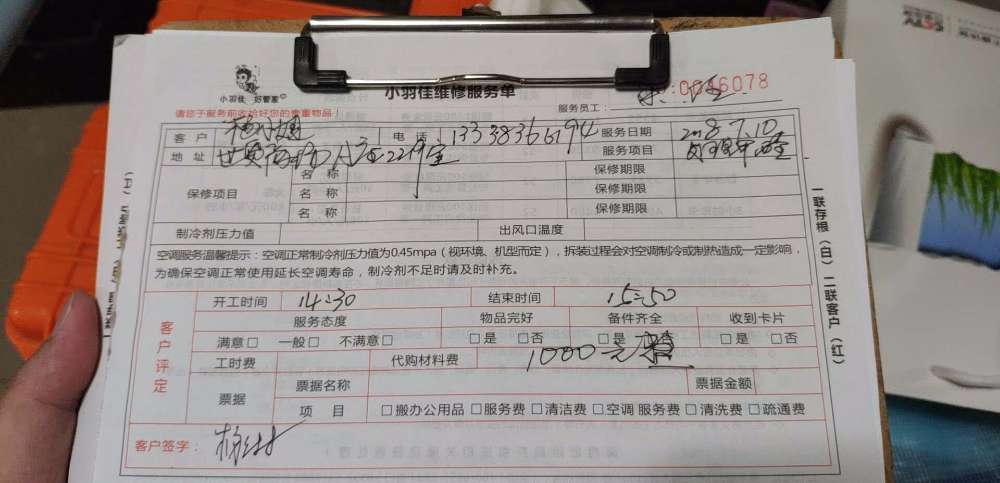 小羽佳 好管家
小羽佳维修服务单
0046078
请您于服务前收拾好您的贵重物品！
服务员工：
客户 电话 13338366194 服务日期 2018.7.10
地址 服务项目
保修项目 名称 保修期限
名称 保修期限
名称 保修期限
制冷剂压力值 出风口温度
空调服务温馨提示：空调正常制冷剂压力值为0.45mpa（视环境、机型而定），拆装过程会对空调制冷或制热造成一定影响，
为确保空调正常使用延长空调寿命，制冷剂不足时请及时补充。
客户评定
开工时间 14:30 结束时间 15:50
服务态度 物品完好 备件齐全 收到卡片
满意□ 一般□ 不满意□ □是 □否 □是 □否 □是 □否
工时费 代购材料费 1000元整
票据 票据名称 票据金额
项目 □搬办公用品 □服务费 □清洁费 □空调服务费 □清洗费 □疏通费
客户签字：
一联存根（白）二联客户（红）